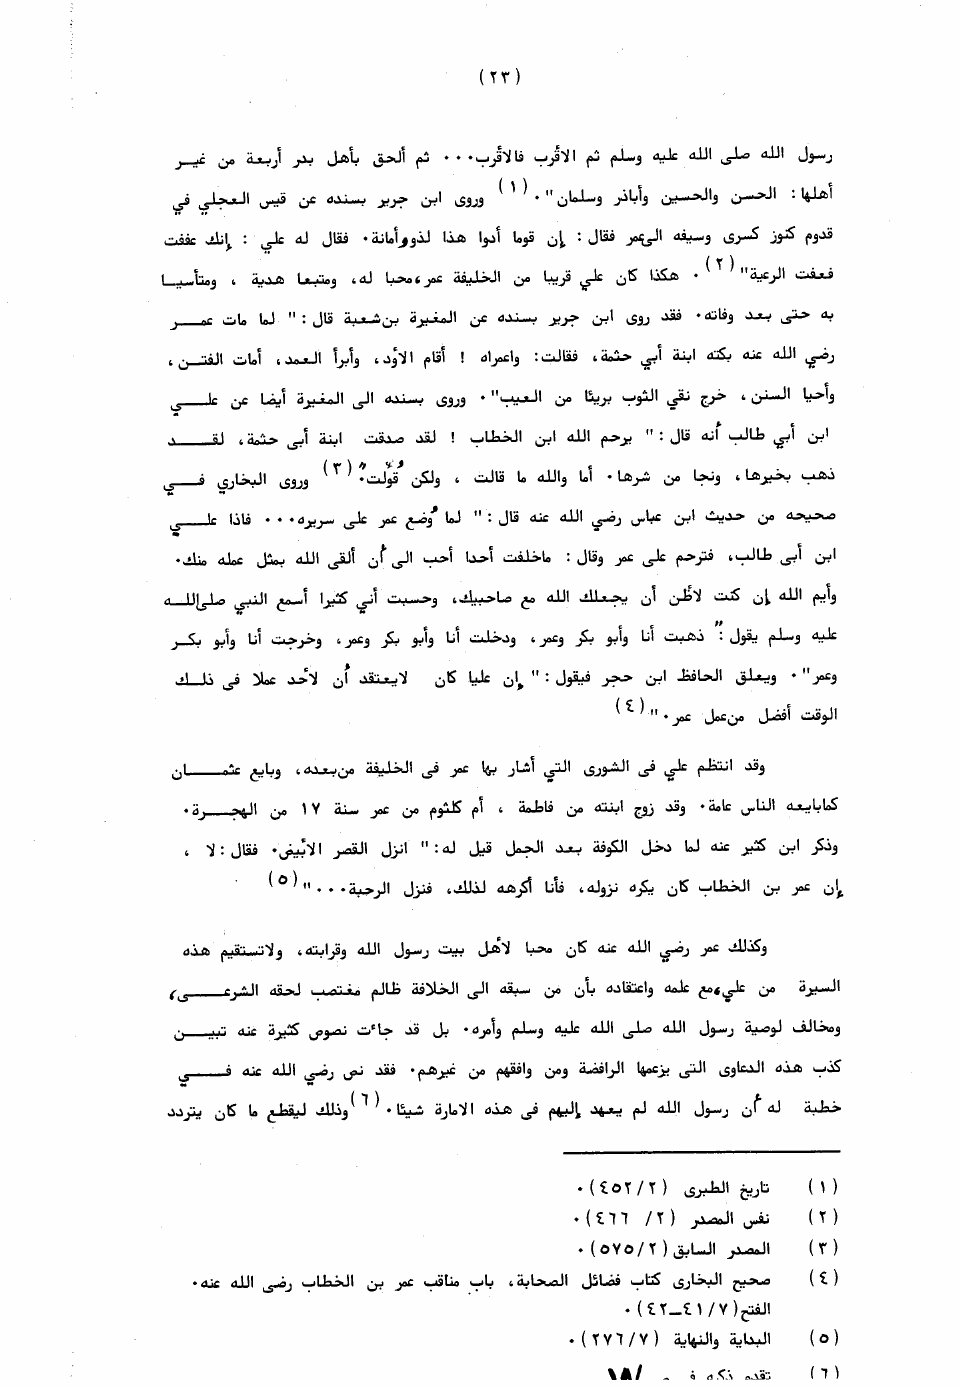 (٢٣)
رسول الله صلى الله عليه وسلم ثم الأقرب فالأقرب٠٠٠ ثم ألحق بأهل بدر أربعة من غيــر
أهلها: الحسن والحسين وأباذر وسلمان"٠ (١) وروى ابن جرير بسنده عن قيس العجلي في
قدوم كنوز كسرى وسيفه الى عمر فقال: إن قوما أدوا هذا لذوو أمانة٠ فقال له علي : إنك عففت
فعفت الرعية" (٢)٠ هكذا كان علي قريبا من الخليفة عمر، محبا له، ومتبعا هدية ، ومتأسيـا
به حتى بعد وفاته٠ فقد روى ابن جرير بسنده عن المغيرة بن شعبة قال: " لما مات عمـــر
رضي الله عنه بكته ابنة أبي حثمة، فقالت: واعمراه ! أقام الأود، وأبرأ العمد، أمات الفتــن،
وأحيا السنن، خرج نقي الثوب بريئا من العيب"٠ وروى بسنده الى المغيرة أيضا عن علـــي
ابن أبي طالب أنه قال: " يرحم الله ابن الخطاب ! لقد صدقت ابنة أبى حثمة، لقــــد
ذهب بخيرها، ونجا من شرها٠ أما والله ما قالت ، ولكن قُوِّلت"٠ (٣) وروى البخاري فـــي
صحيحه من حديث ابن عباس رضي الله عنه قال: " لما وُضع عمر على سريره٠٠٠ فاذا علـــي
ابن أبى طالب، فترحم على عمر وقال: ماخلفت أحدا أحب الى أن ألقى الله بمثل عمله منك٠
وأيم الله إن كنت لأظن أن يجعلك الله مع صاحبيك، وحسبت أني كثيرا أسمع النبي صلى اللــه
عليه وسلم يقول: " ذهبت أنا وأبو بكر وعمر، ودخلت أنا وأبو بكر وعمر، وخرجت أنا وأبو بكــر
وعمر"٠ ويعلق الحافظ ابن حجر فيقول: " إن عليا كان لايعتقد أن لأحد عملا فى ذلــك
الوقت أفضل من عمل عمر٠" (٤)
وقد انتظم علي فى الشورى التي أشار بها عمر فى الخليفة من بعده، وبايع عثمــــان
كمابايعه الناس عامة٠ وقد زوج ابنته من فاطمة ، أم كلثوم من عمر سنة ١٧ من الهجــرة٠
وذكر ابن كثير عنه لما دخل الكوفة بعد الجمل قيل له: " انزل القصر الأبيض٠ فقال: لا ،
إن عمر بن الخطاب كان يكره نزوله، فأنا أكرهه لذلك، فنزل الرحبة٠٠٠" (٥)
وكذلك عمر رضي الله عنه كان محبا لأهل بيت رسول الله وقرابته، ولاتستقيم هذه
السيرة من علي، مع علمه واعتقاده بأن من سبقه الى الخلافة ظالم مغتصب لحقه الشرعـــى،
ومخالف لوصية رسول الله صلى الله عليه وسلم وأمره٠ بل قد جاءت نصوص كثيرة عنه تبيــن
كذب هذه الدعاوى التى يزعمها الرافضة ومن وافقهم من غيرهم٠ فقد نص رضي الله عنه فــــي
خطبة له أن رسول الله لم يعهد إليهم فى هذه الامارة شيئا٠ (٦) وذلك ليقطع ما كان يتردد
(١) تاريخ الطبرى (٤٥٢/٢)٠
(٢) نفس المصدر (٢/ ٤٦٦)٠
(٣) المصدر السابق (٥٧٥/٢)٠
(٤) صحيح البخارى كتاب فضائل الصحابة، باب مناقب عمر بن الخطاب رضى الله عنه٠
الفتح (٤١/٧ـ٤٢)٠
(٥) البداية والنهاية (٢٧٦/٧)٠
(٦) تقدم ذكره فى ص